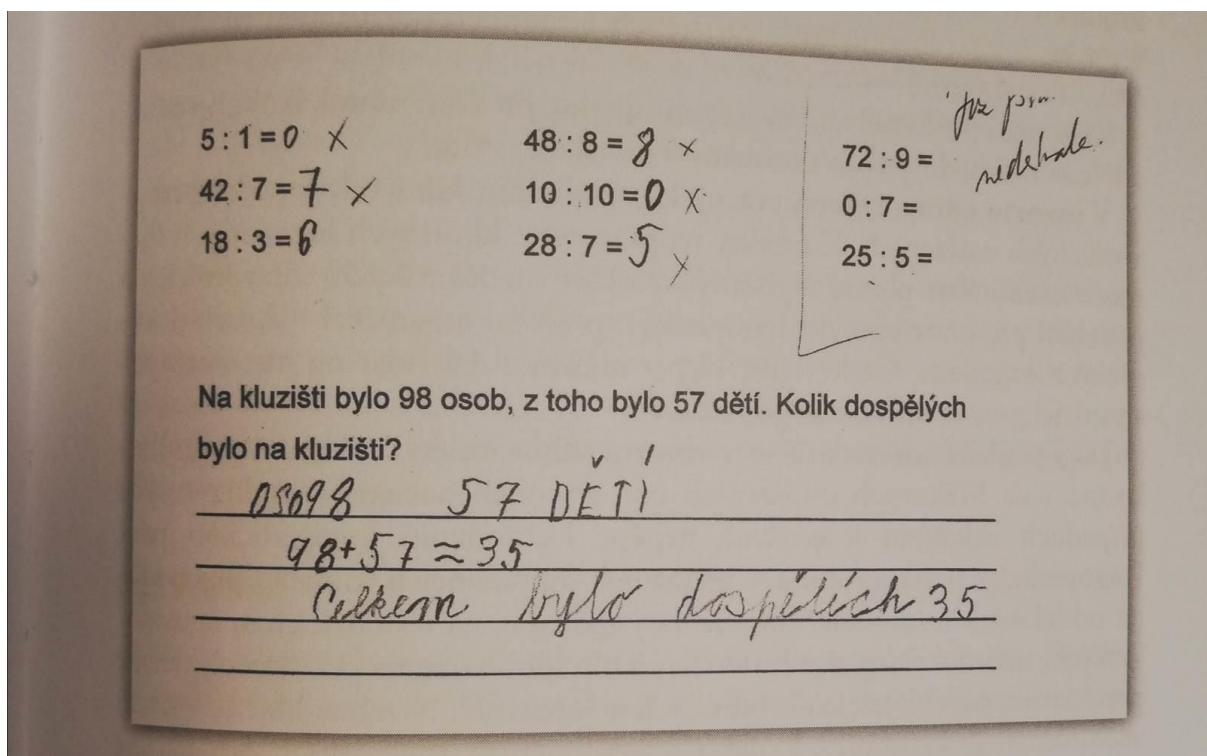 5 : 1 = 0 x
42 : 7 = 7 x
18 : 3 = 6
48 : 8 = 8 x
10 : 10 = 0 x
28 : 7 = 5 x
72 : 9 =
0 : 7 =
25 : 5 =
již
Na kluzišti bylo 98 osob, z toho bylo 57 dětí. Kolik dospělých
bylo na kluzišti?
OSO98 57 DĚTÍ
98+57 ≈ 35
Celkem bylo dospělích 35